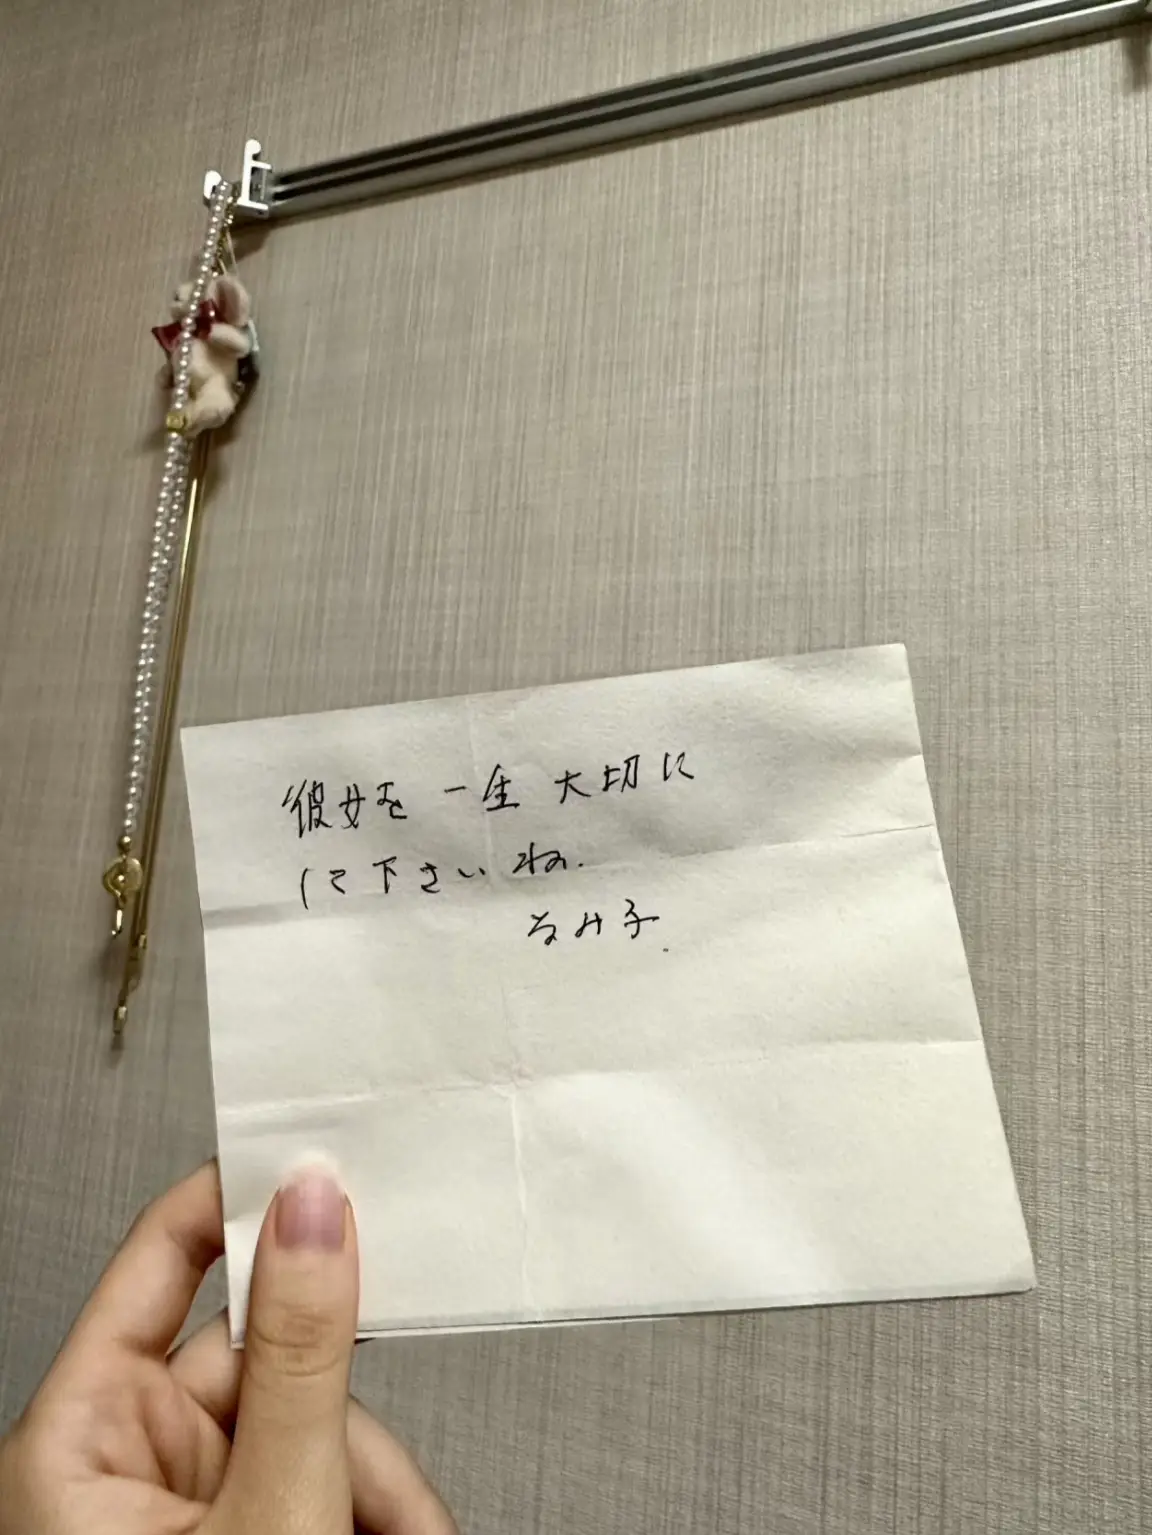 彼女を一生大切に
して下さいね.
なみ子.